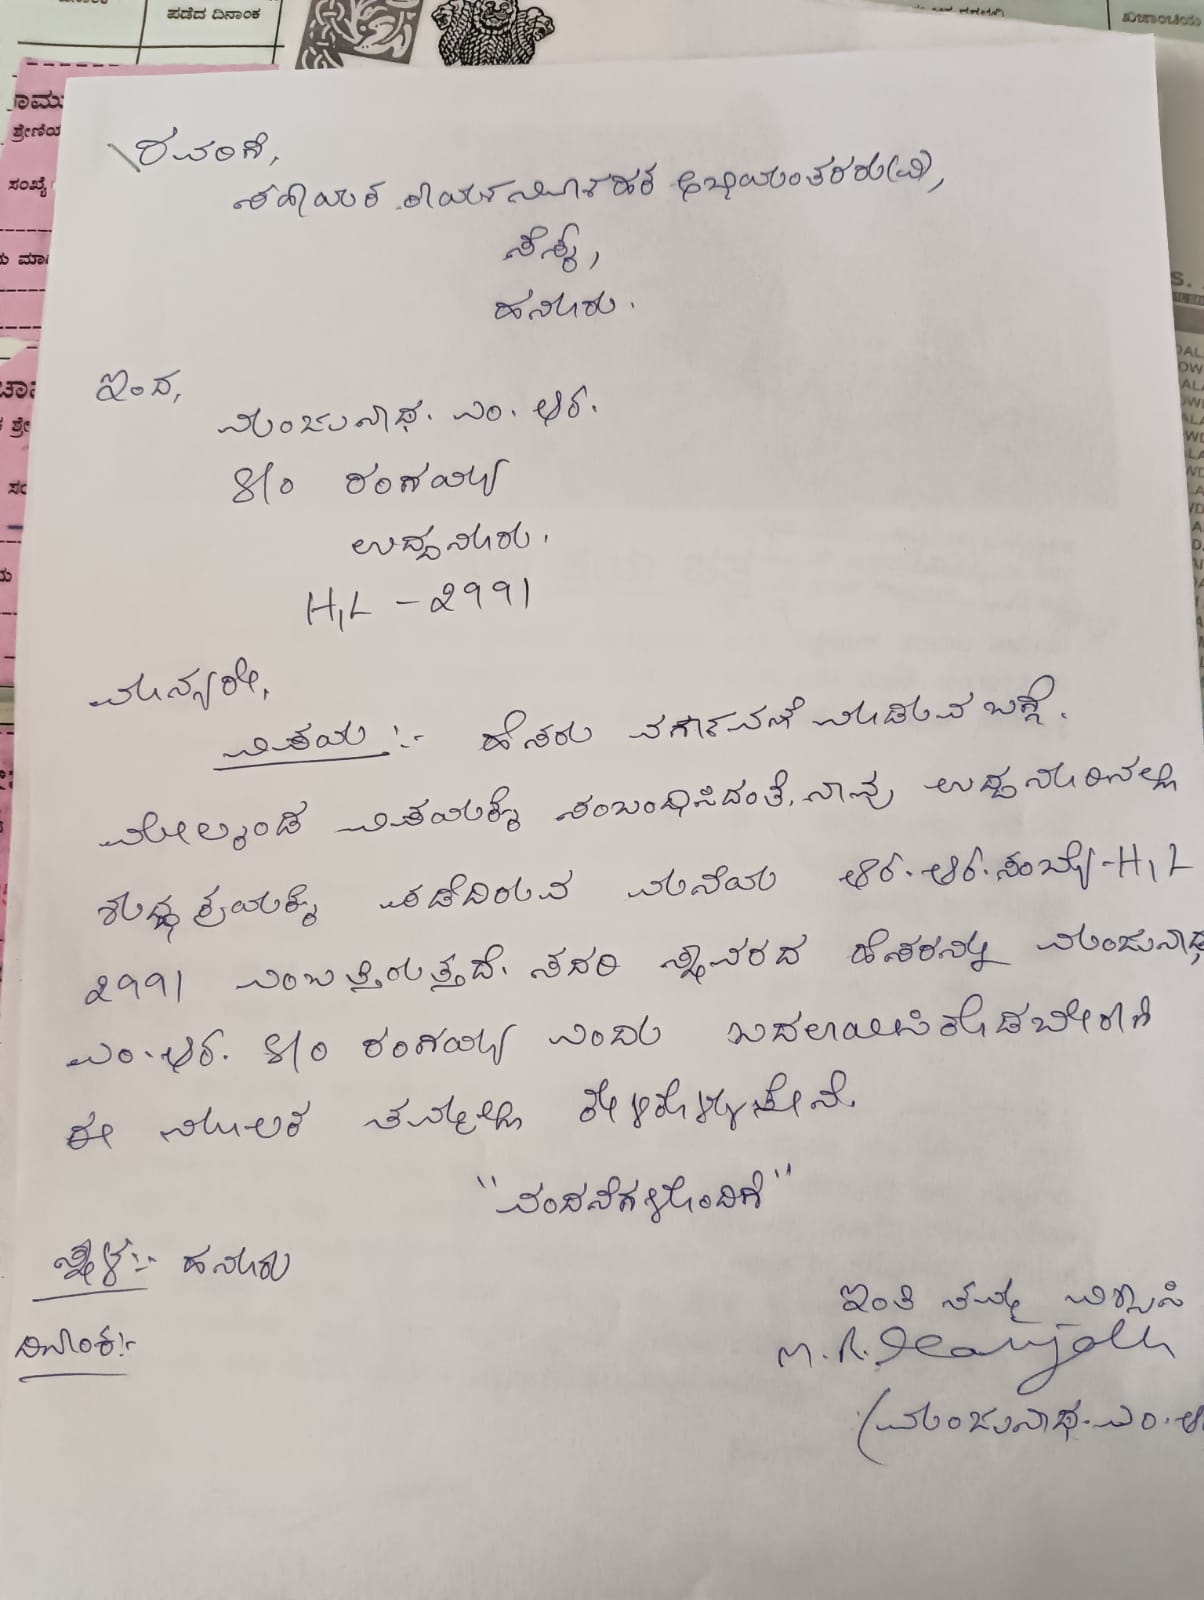 ಪಡೆದ ದಿನಾಂಕ
ರವರಿಗೆ,
ಸಹಾಯಕ ಕಾರ್ಯನಿರ್ವಾಹಕ ಅಭಿಯಂತರರು(ವಿ),
ಸೆಸ್ಕ್,
ಹನೂರು.
ಇಂದ,
ಮಂಜುನಾಥ. ಎಂ. ಆರ್.
S/o ರಂಗಯ್ಯ
ಉದ್ದನೂರು.
H,L - 2991
ಮಾನ್ಯರೇ,
ವಿಷಯ :- ಹೆಸರು ವರ್ಗಾವಣೆ ಮಾಡುವ ಬಗ್ಗೆ.
ಮೇಲ್ಕಂಡ ವಿಷಯಕ್ಕೆ ಸಂಬಂಧಿಸಿದಂತೆ, ನಾನು ಉದ್ದನೂರಿನಲ್ಲಿ
ಶುದ್ಧ ಕ್ರಯಕ್ಕೆ ಪಡೆದಿರುವ ಮನೆಯ ಆರ್. ಆರ್. ಸಂಖ್ಯೆ-H,L
2991 ಎಂಬುತ್ತಿರುತ್ತದೆ. ಸದರಿ ಸ್ಥಾವರದ ಹೆಸರನ್ನು ಮಂಜುನಾಥ,
ಎಂ.ಆರ್. S/o ರಂಗಯ್ಯ ಎಂದು ಬದಲಾಯಿಸಿಕೊಡಬೇಕಾಗಿ
ಈ ಮೂಲಕ ತಮ್ಮಲ್ಲಿ ಕೇಳಿಕೊಳ್ಳುತ್ತೇನೆ.
"ವಂದನೆಗಳೊಂದಿಗೆ"
ಸ್ಥಳ:- ಹನೂರು
ದಿನಾಂಕ:-
ಇಂತಿ ತಮ್ಮ ವಿಶ್ವಾಸಿ
M.R. Manjath
(ಮಂಜುನಾಥ. ಎಂ. ಆ